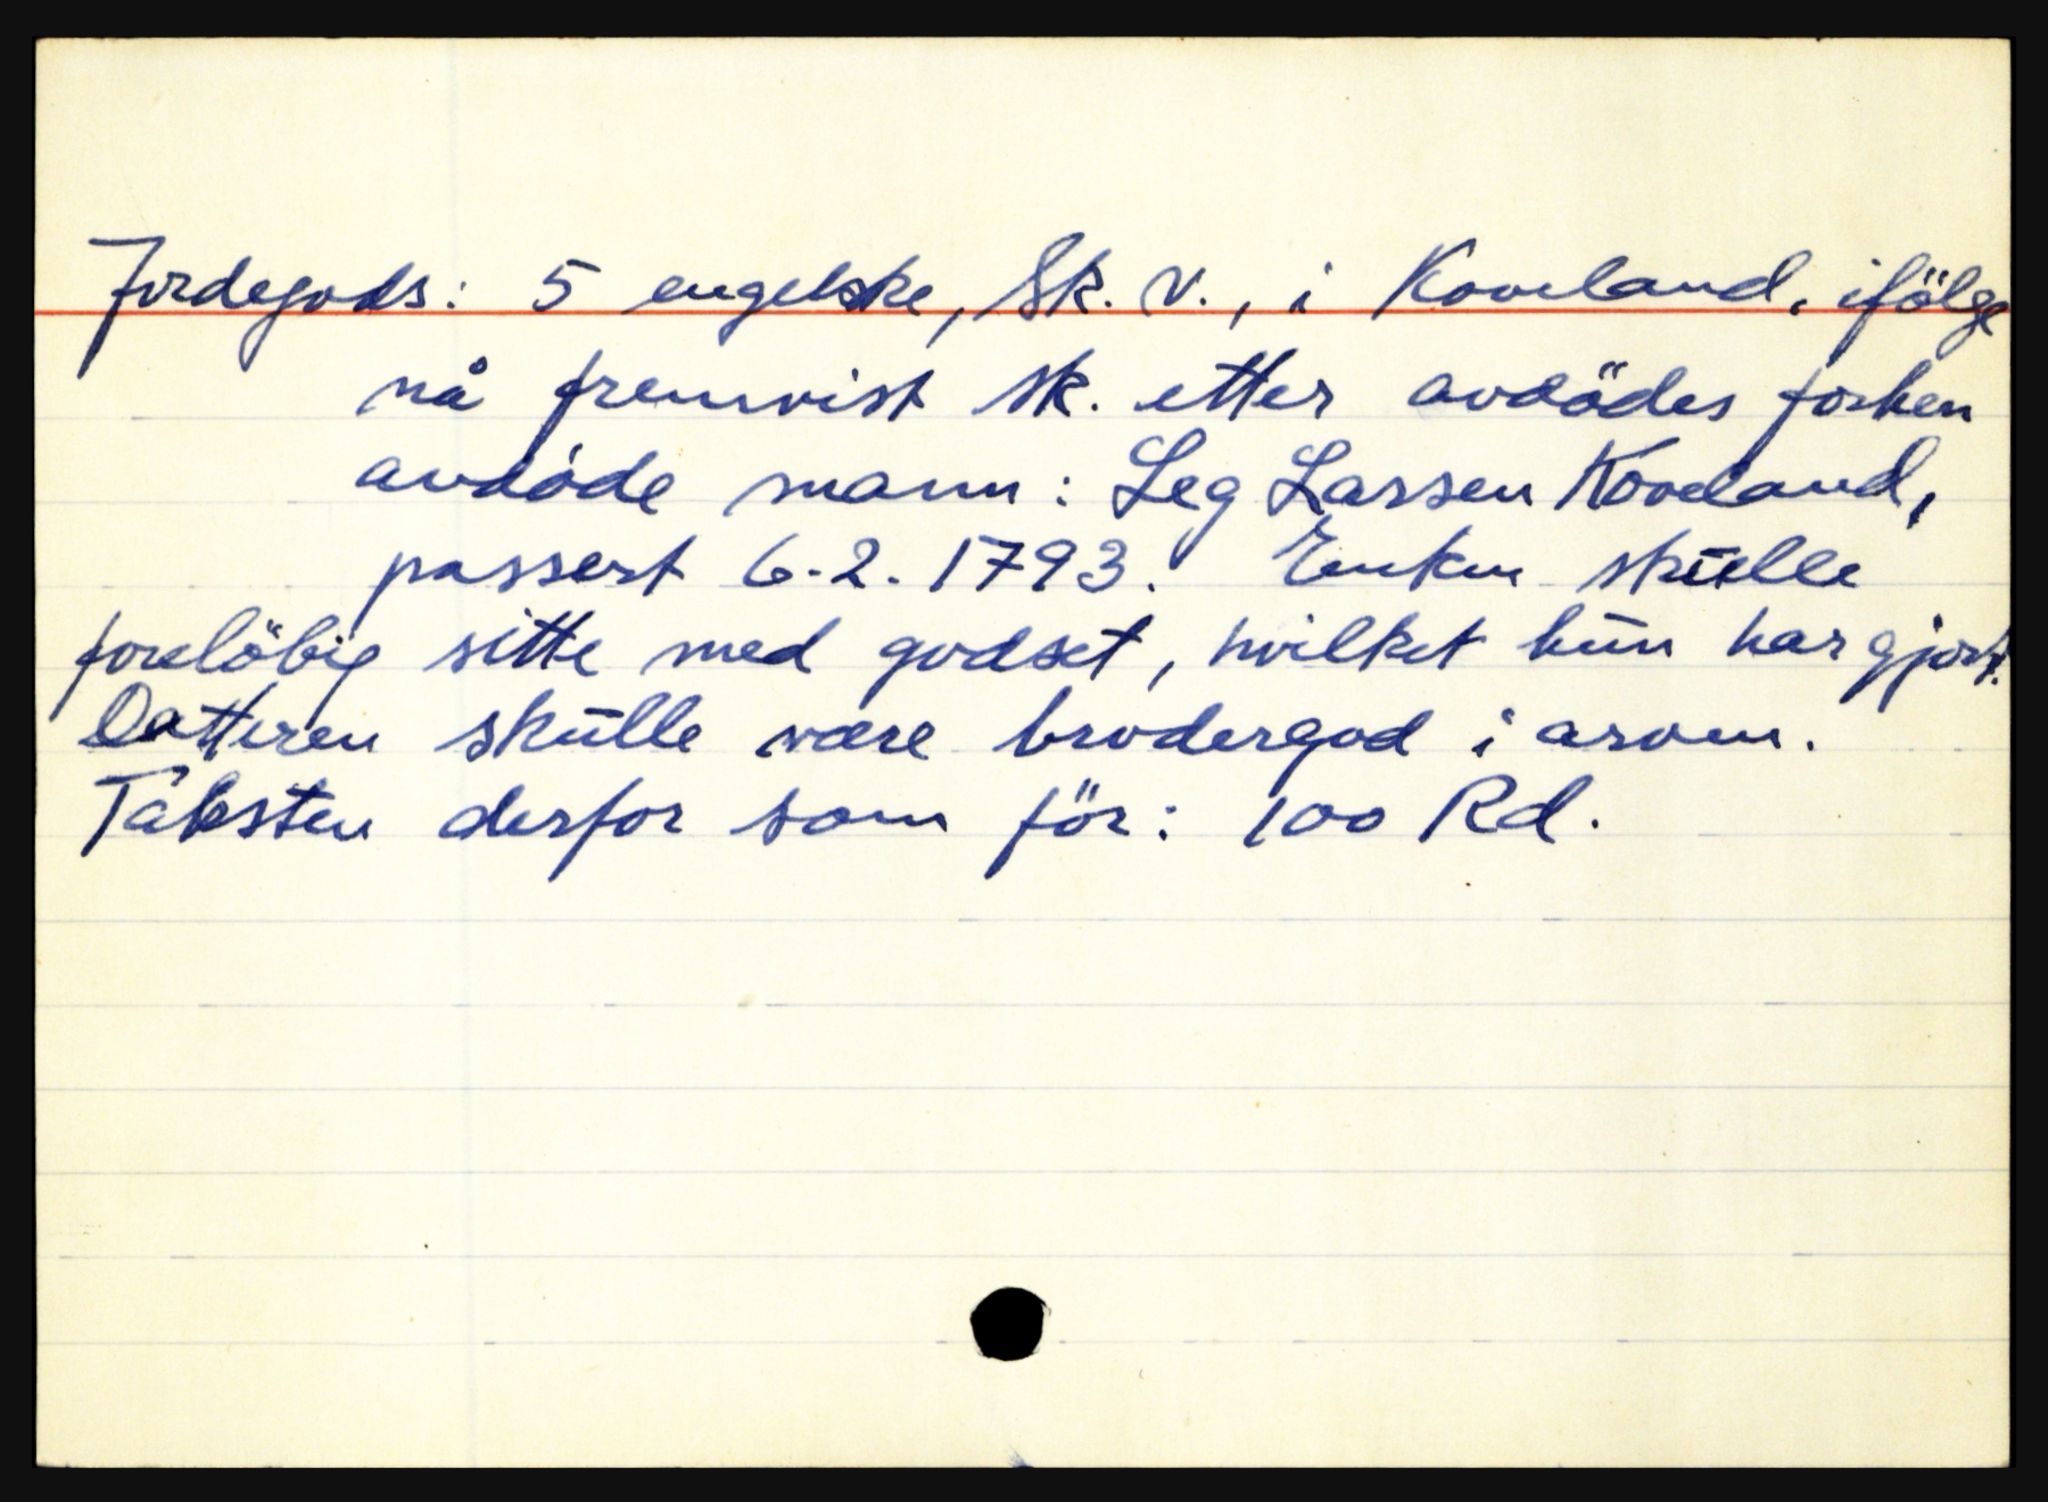 Jordegods: 5 engelske, Sk. V., i Koveland. ifölge
nå fremvist sk. etter avdödes forhen
avdöde mann: Leg Larssen Koveland,
passert 6.2.1793. Enken skulle
foreløbig sitte med godset, hvilket hun har gjort.
Datteren skulle være brodergod i arven.
Taksten derfor som för: 100 Rd.